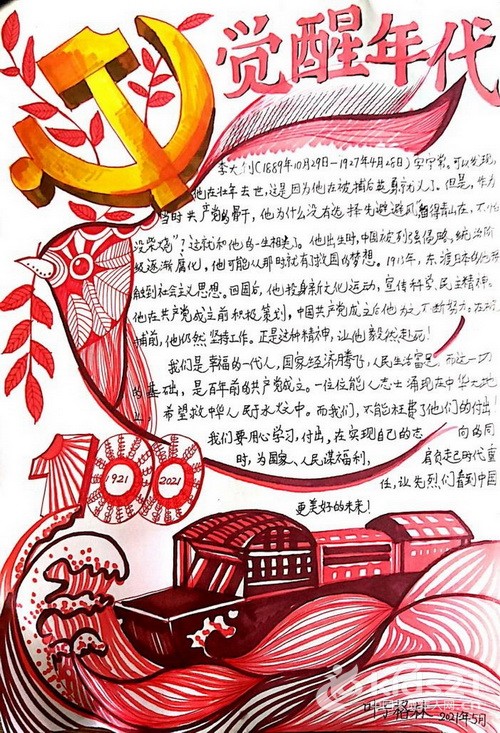 觉醒年代
李大钊(1889年10月29日-1927年4月28日)字守常。可以发现,
他在壮年去世,这是因为他在被捕后英勇就义了。但是,作为
当时共产党的骨干,他为什么没有选择先避避风
没柴烧"?这就和他的一生相关了。他出生时,中国被列强侵略,统治阶
级逐渐腐化,他可能从那时就有了救国的梦想。1913年,东渡日本的他
触到社会主义思想。回国后,他投身新文化运动,宣传科学、民主精神。
他在共产党成立前积极策划,中国共产党成立后他为之不断努力。在
捕前,他仍然坚持工作。正是这种精神,让他毅然赴死!
我们是幸福的一代人,国家经济腾飞,人民生活富足。而这一切
的基础,是百年前的共产党成立。一位位能人志士涌现在中华大地
上,希望救中华人民于水火之中。而我们,不能枉费了他们的付出!
我们要用心学习,付出,在实现自己的志向的同
时,为国家、人民谋福利,肩负起时代重
任,让先烈们看到中国
更美好的未来!
1921 2021
2021年5月